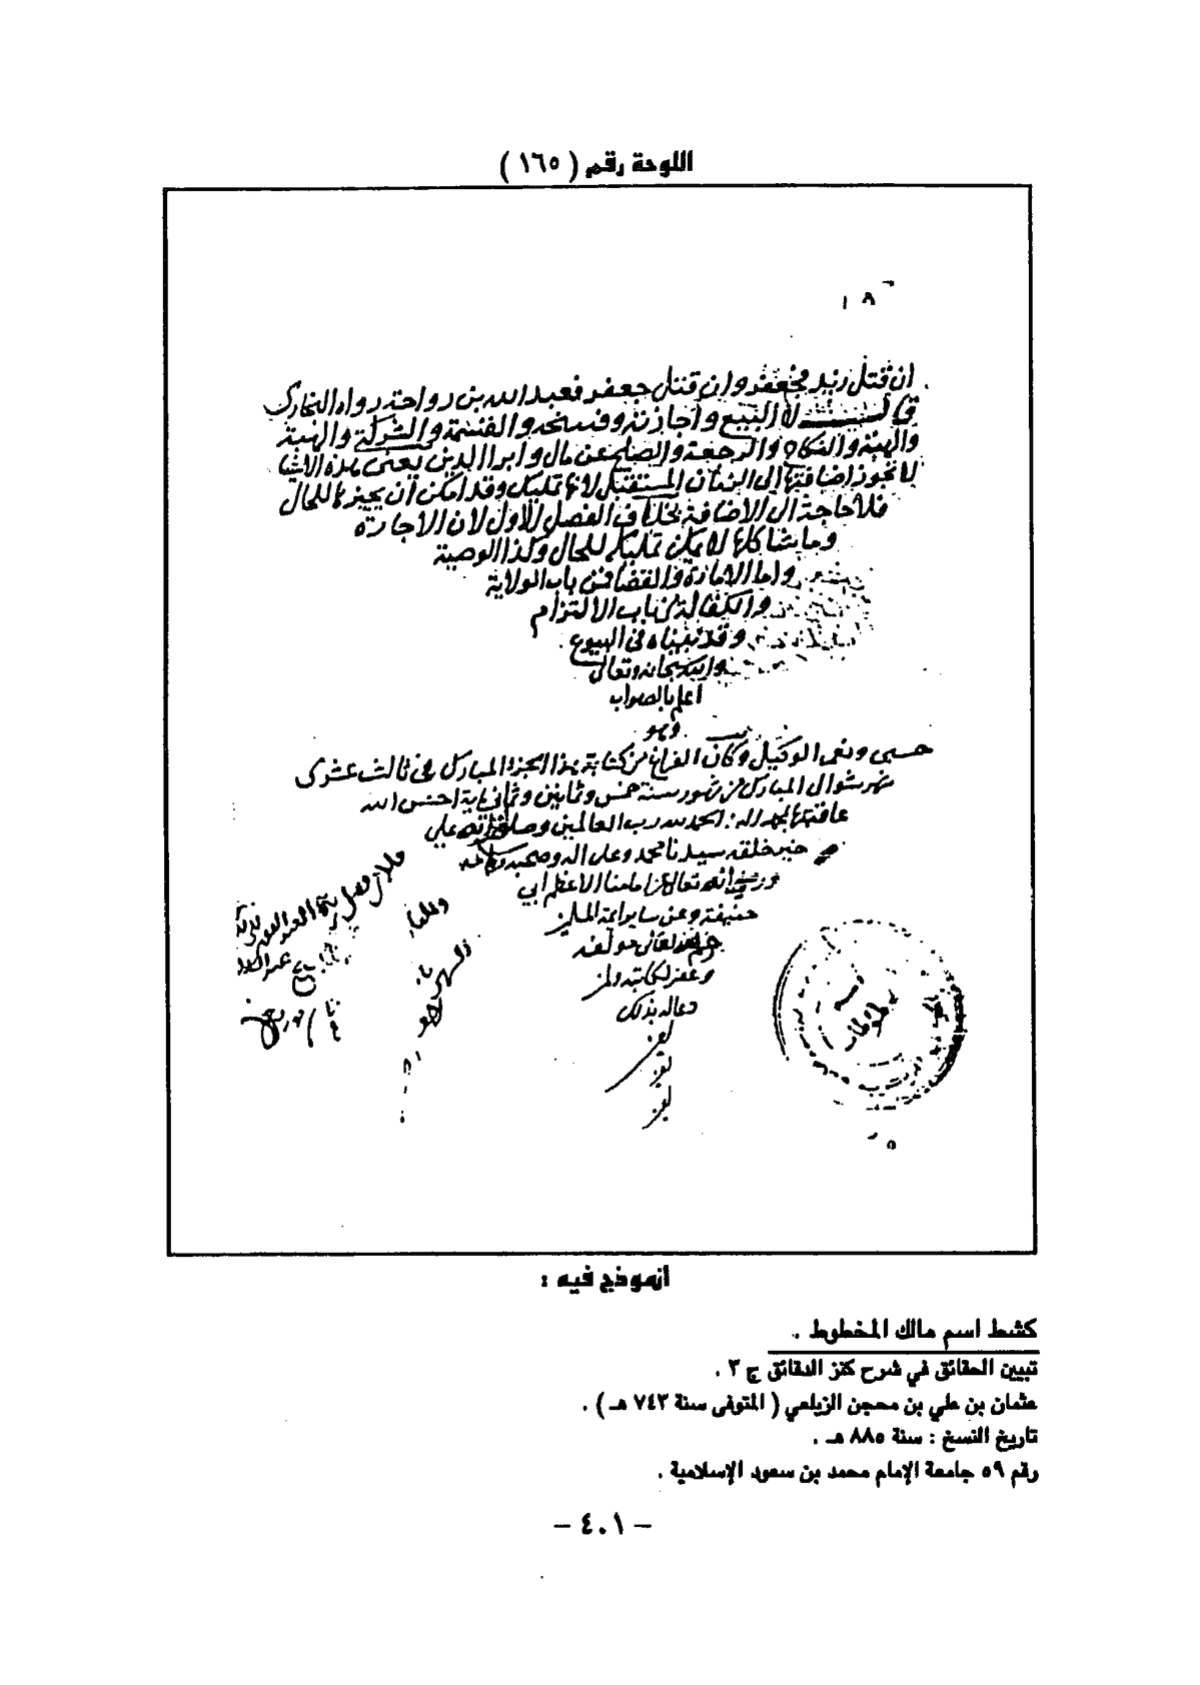 اللوحة رقم ( ١٦٥ )
ان قتل زيد فجعفر وان قتل جعفر فعبد الله بن رواحة رواه البخاري
لا البيع واجازته وفسخه والقسمة والشركة والهبة
والنكاح والرجعة والصلح عن مال وابرا الدين يعني هذه الاشيا
لا تجوز اضافتها الى الزمان المستقبل لانها تمليك وقد امكن تنجيزها للحال
فلا حاجة الى الاضافة بخلاف الفصل الاول لان الاجارة
وما شاكلها لا يمكن تمليكه للحال وكذا الوصية
واما الامارة والقضا فمن باب الولاية
والكفالة من باب الالتزام
وقد بيناه في البيوع
والله سبحانه وتعالى
اعلم بالصواب
وهو
حسبي ونعم الوكيل وكان الفراغ من كتابة هذا الجزء المبارك في ثالث عشري
شهر شوال المبارك من شهور سنة خمس وثمانين وثمانماية احسن الله
عاقبتها الحمد لله رب العالمين وصلى الله على
خير خلقه سيدنا محمد وعلى اله وصحبه
ورضي الله تعالى عن امامنا الاعظم ابي
حنيفة وعن ساير ائمة
وغفر لكاتبه ولمن
دعا له بذلك
انموذج فيه :
كشط اسم مالك المخطوط .
تبيين الحقائق في شرح كنز الدقائق ج ٣ .
عثمان بن علي بن محجن الزيلعي ( المتوفى سنة ٧٤٣ هـ ) .
تاريخ النسخ : سنة ٨٨٥ هـ .
رقم ٥٩ جامعة الإمام محمد بن سعود الإسلامية .
– ٤٠١ –